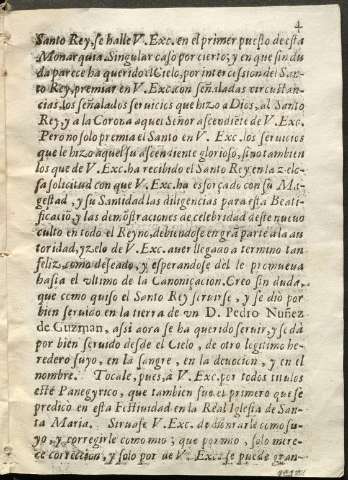 4
Santo Rey, se halle V. Exc. en el primer puesto de esta
Monarquia. Singular caso por cierto; y en que sin du
da parece ha querido el Cielo, por intercession del San-
to Rey, premiar en V. Exc. con señaladas circunstan-
cias, los señalados servicios que hizo a Dios, al Santo
Rey, y a la Corona aquel Señor ascendiẽte de V. Exc.
Pero no solo premia el Santo en V. Exc. los servicios
que le hizo aquel su ascendiente glorioso, sino tambien
los que de V. Exc. ha recibido el Santo Rey, en la zelo-
sa solicitud con que V. Exc. ha esforçado con su Ma-
gestad, y su Santidad las diligencias para esta Beati-
ficaciõ, y las demõstraciones de celebridad deste nuevo
culto en todo el Reyno, debiendose en grã parte a la au
toridad, y zelo de V. Exc. aver llegado a termino tan
feliz, como deseado, y esperandose del le promueva
hasta el vltimo de la Canoniçacion. Creo sin duda,
que como quiso el Santo Rey servirse, y se diò por
bien servido en la tierra de vn D. Pedro Nuñez
de Guzman, assi aora se ha querido servir, y se dà
por bien servido desde el Cielo, de otro legitimo he-
redero suyo, en la sangre, en la devocion, y en el
nombre. Tocale, pues, à V. Exc. por todos titulos
este Panegyrico, que tambien fue el primero que se
predicò en esta Festividad en la Real Iglesia de San-
ta Maria. Sirvase V. Exc. de honrarle como su-
yo, y corregirle como mio; que por mio, solo mere-
ce correccion, y solo por de V. Exc. se puede gran-